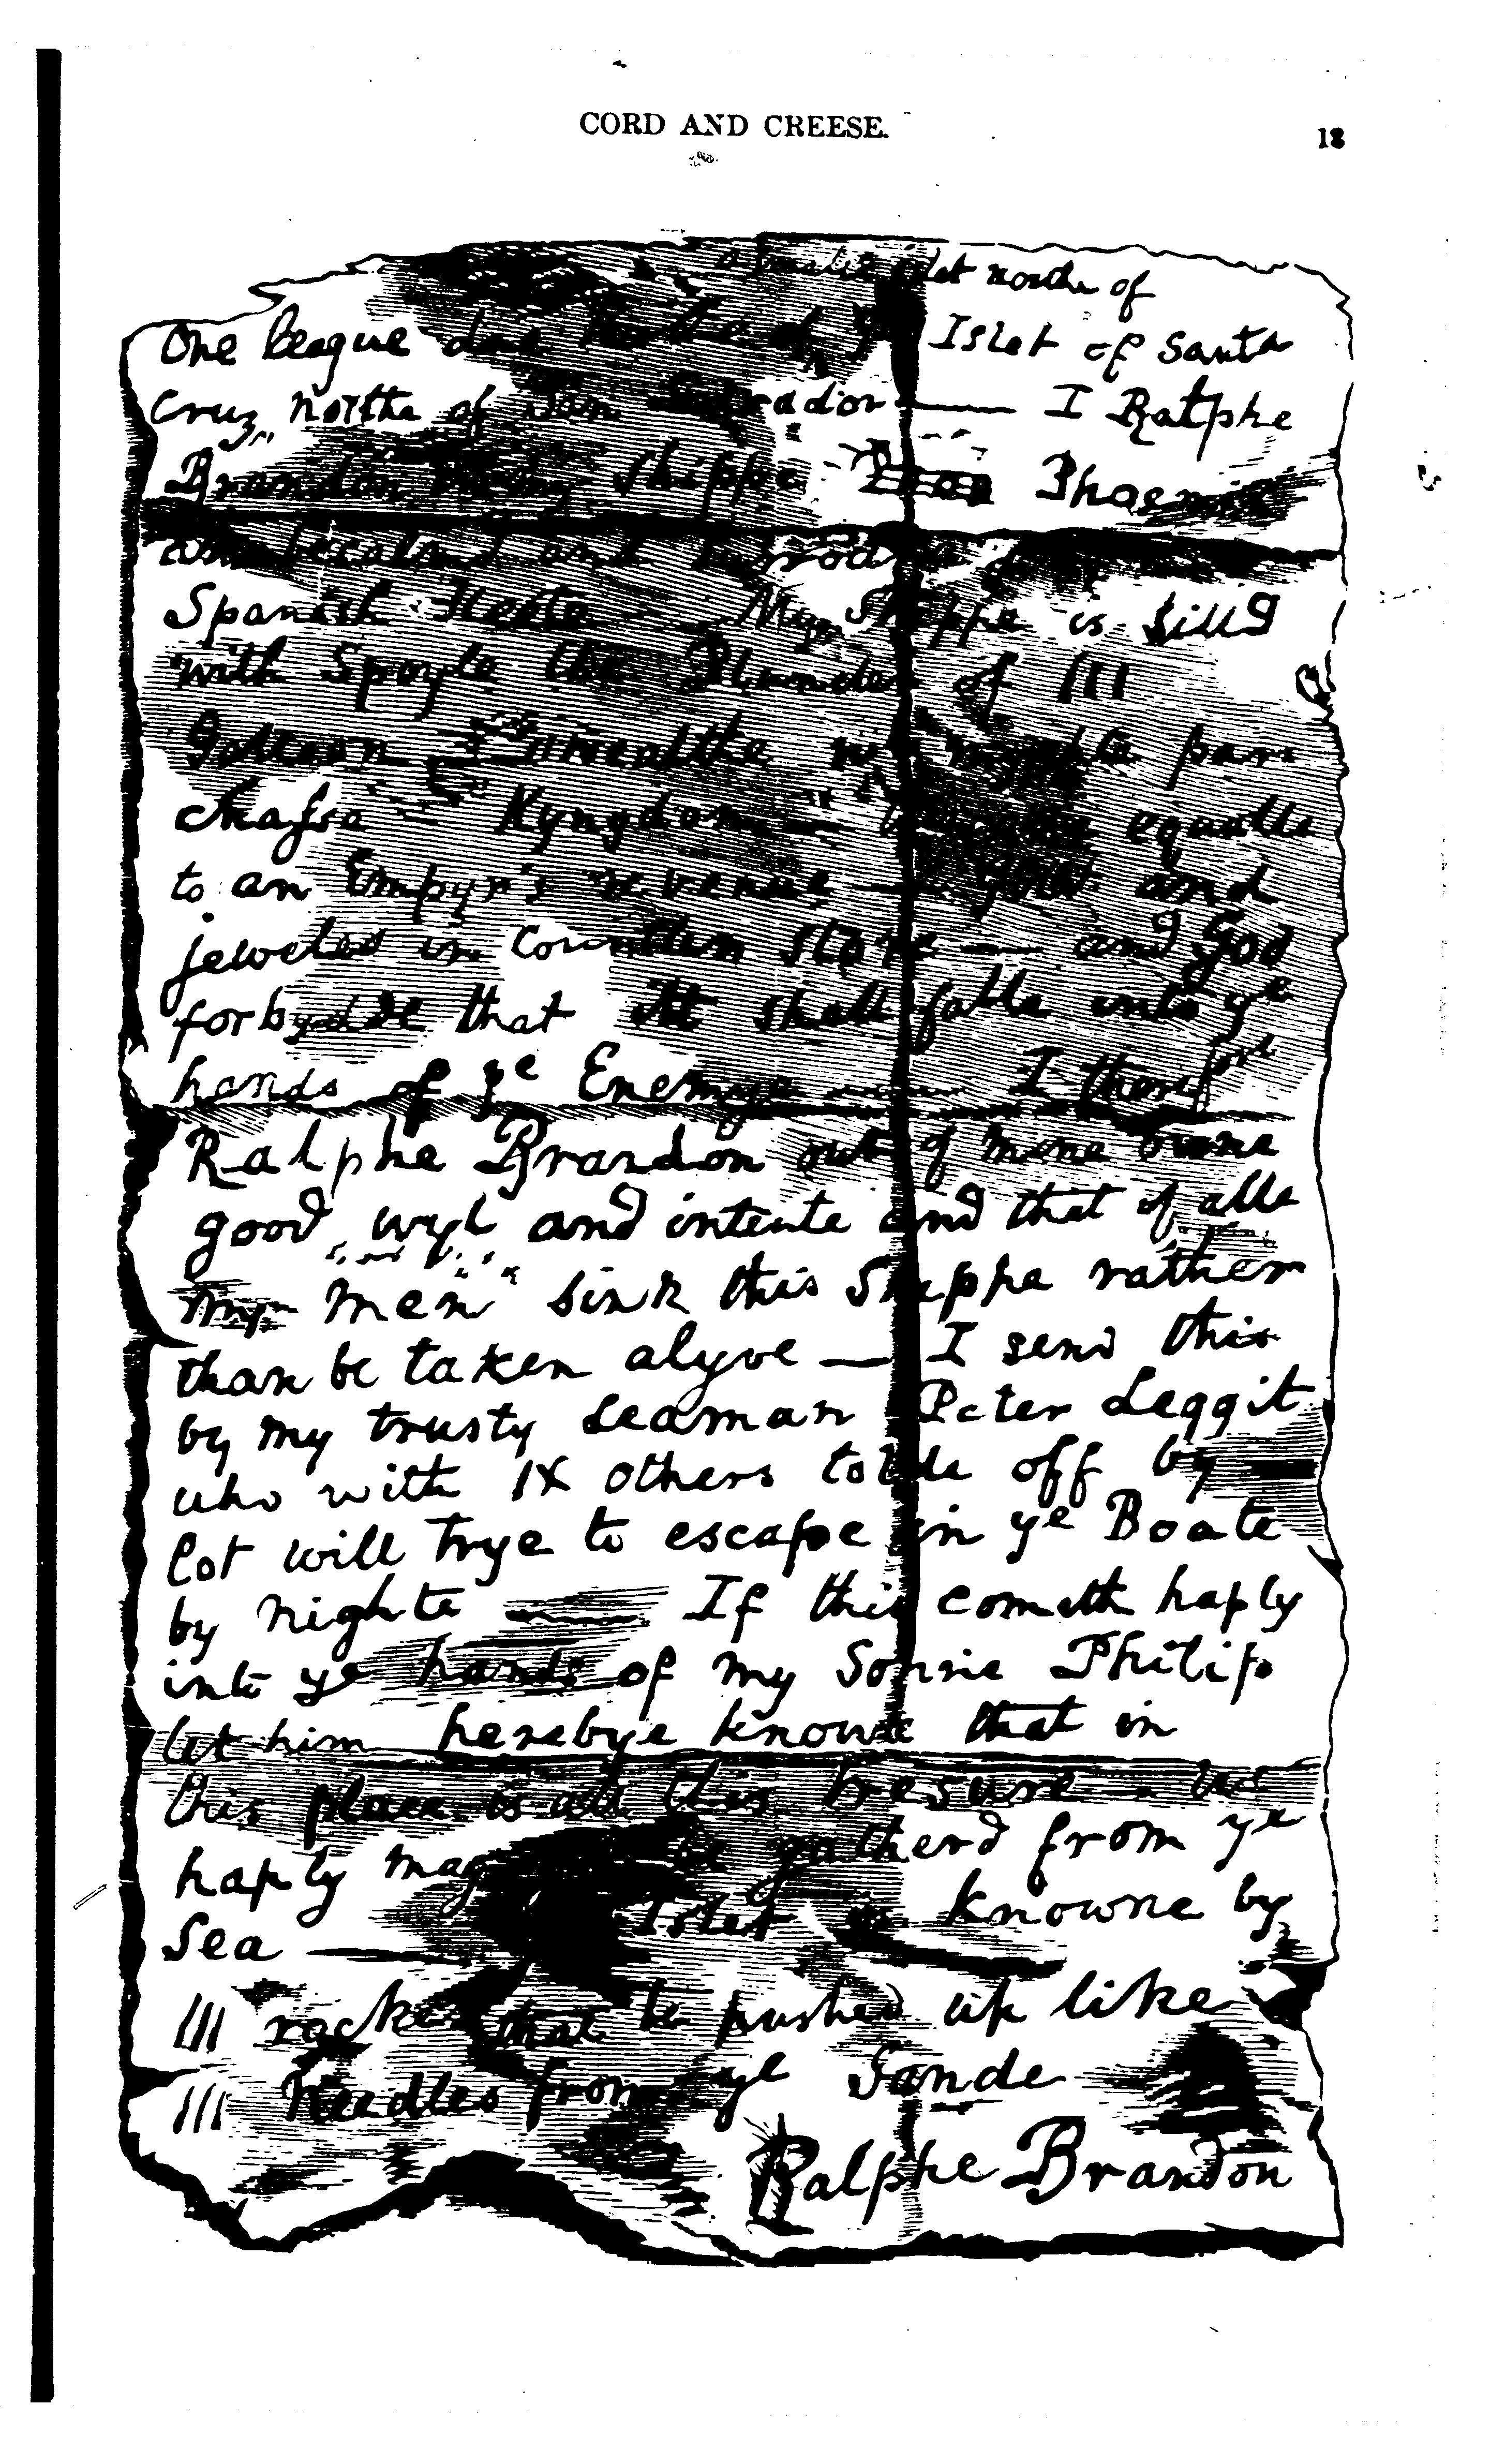 CORD AND CREESE.
13
islet northe of
One league due northe of ye Islet of Santa
Cruz northe of San Salvador —— I Ralphe
Brandon in my shippe Phoenix
am becalmd and surrounded
Spanish Fleete — My Shippe is filld
with Spoyle the Plunder of III
Galleon — wealthe wh myghte pur
chasse a Kyngdom — tresure equalle
to an Empyr's revenue — Gold and
jeweles in countless store — and God
forbydde that itt shall falle into ye
hands of ye Enemye —— I therefore
Ralphe Brandon out of mine owne
good wyl and intente and that of alle
my men sink this Shippe rather
than be taken alyve — I send this
by my trusty seaman Peter Leggit
who with IX others tolde off by
lot will trye to escape in ye Boate
by nighte —— If this cometh haply
into ye hands of my Sonne Philip
let him herebye knowe that in
this place is all this tresure — wh
haply may be gatherd from ye
Sea —— Islet is knowne by
III rockes that be pushed up like
III Needles from ye Sande
Ralphe Brandon